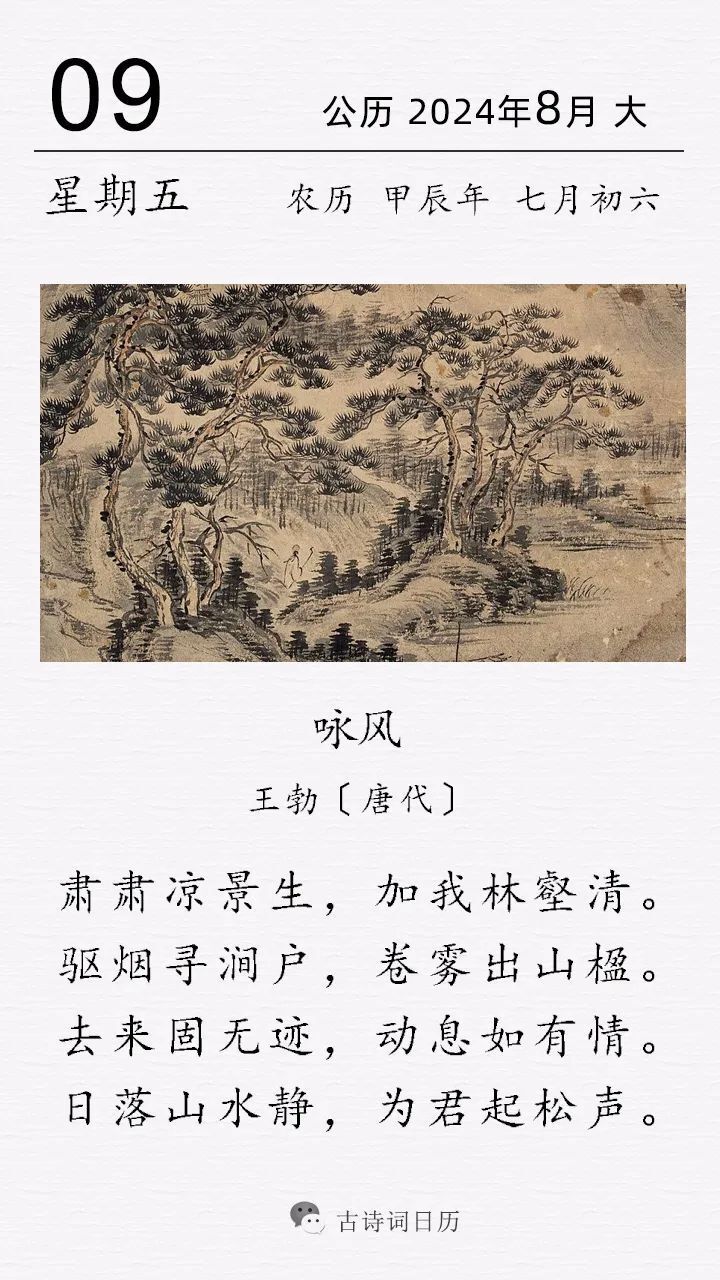 09
公历 2024年8月 大
星期五
农历 甲辰年 七月初六
咏风
王勃〔唐代〕
肃肃凉景生，加我林壑清。
驱烟寻涧户，卷雾出山楹。
去来固无迹，动息如有情。
日落山水静，为君起松声。
古诗词日历